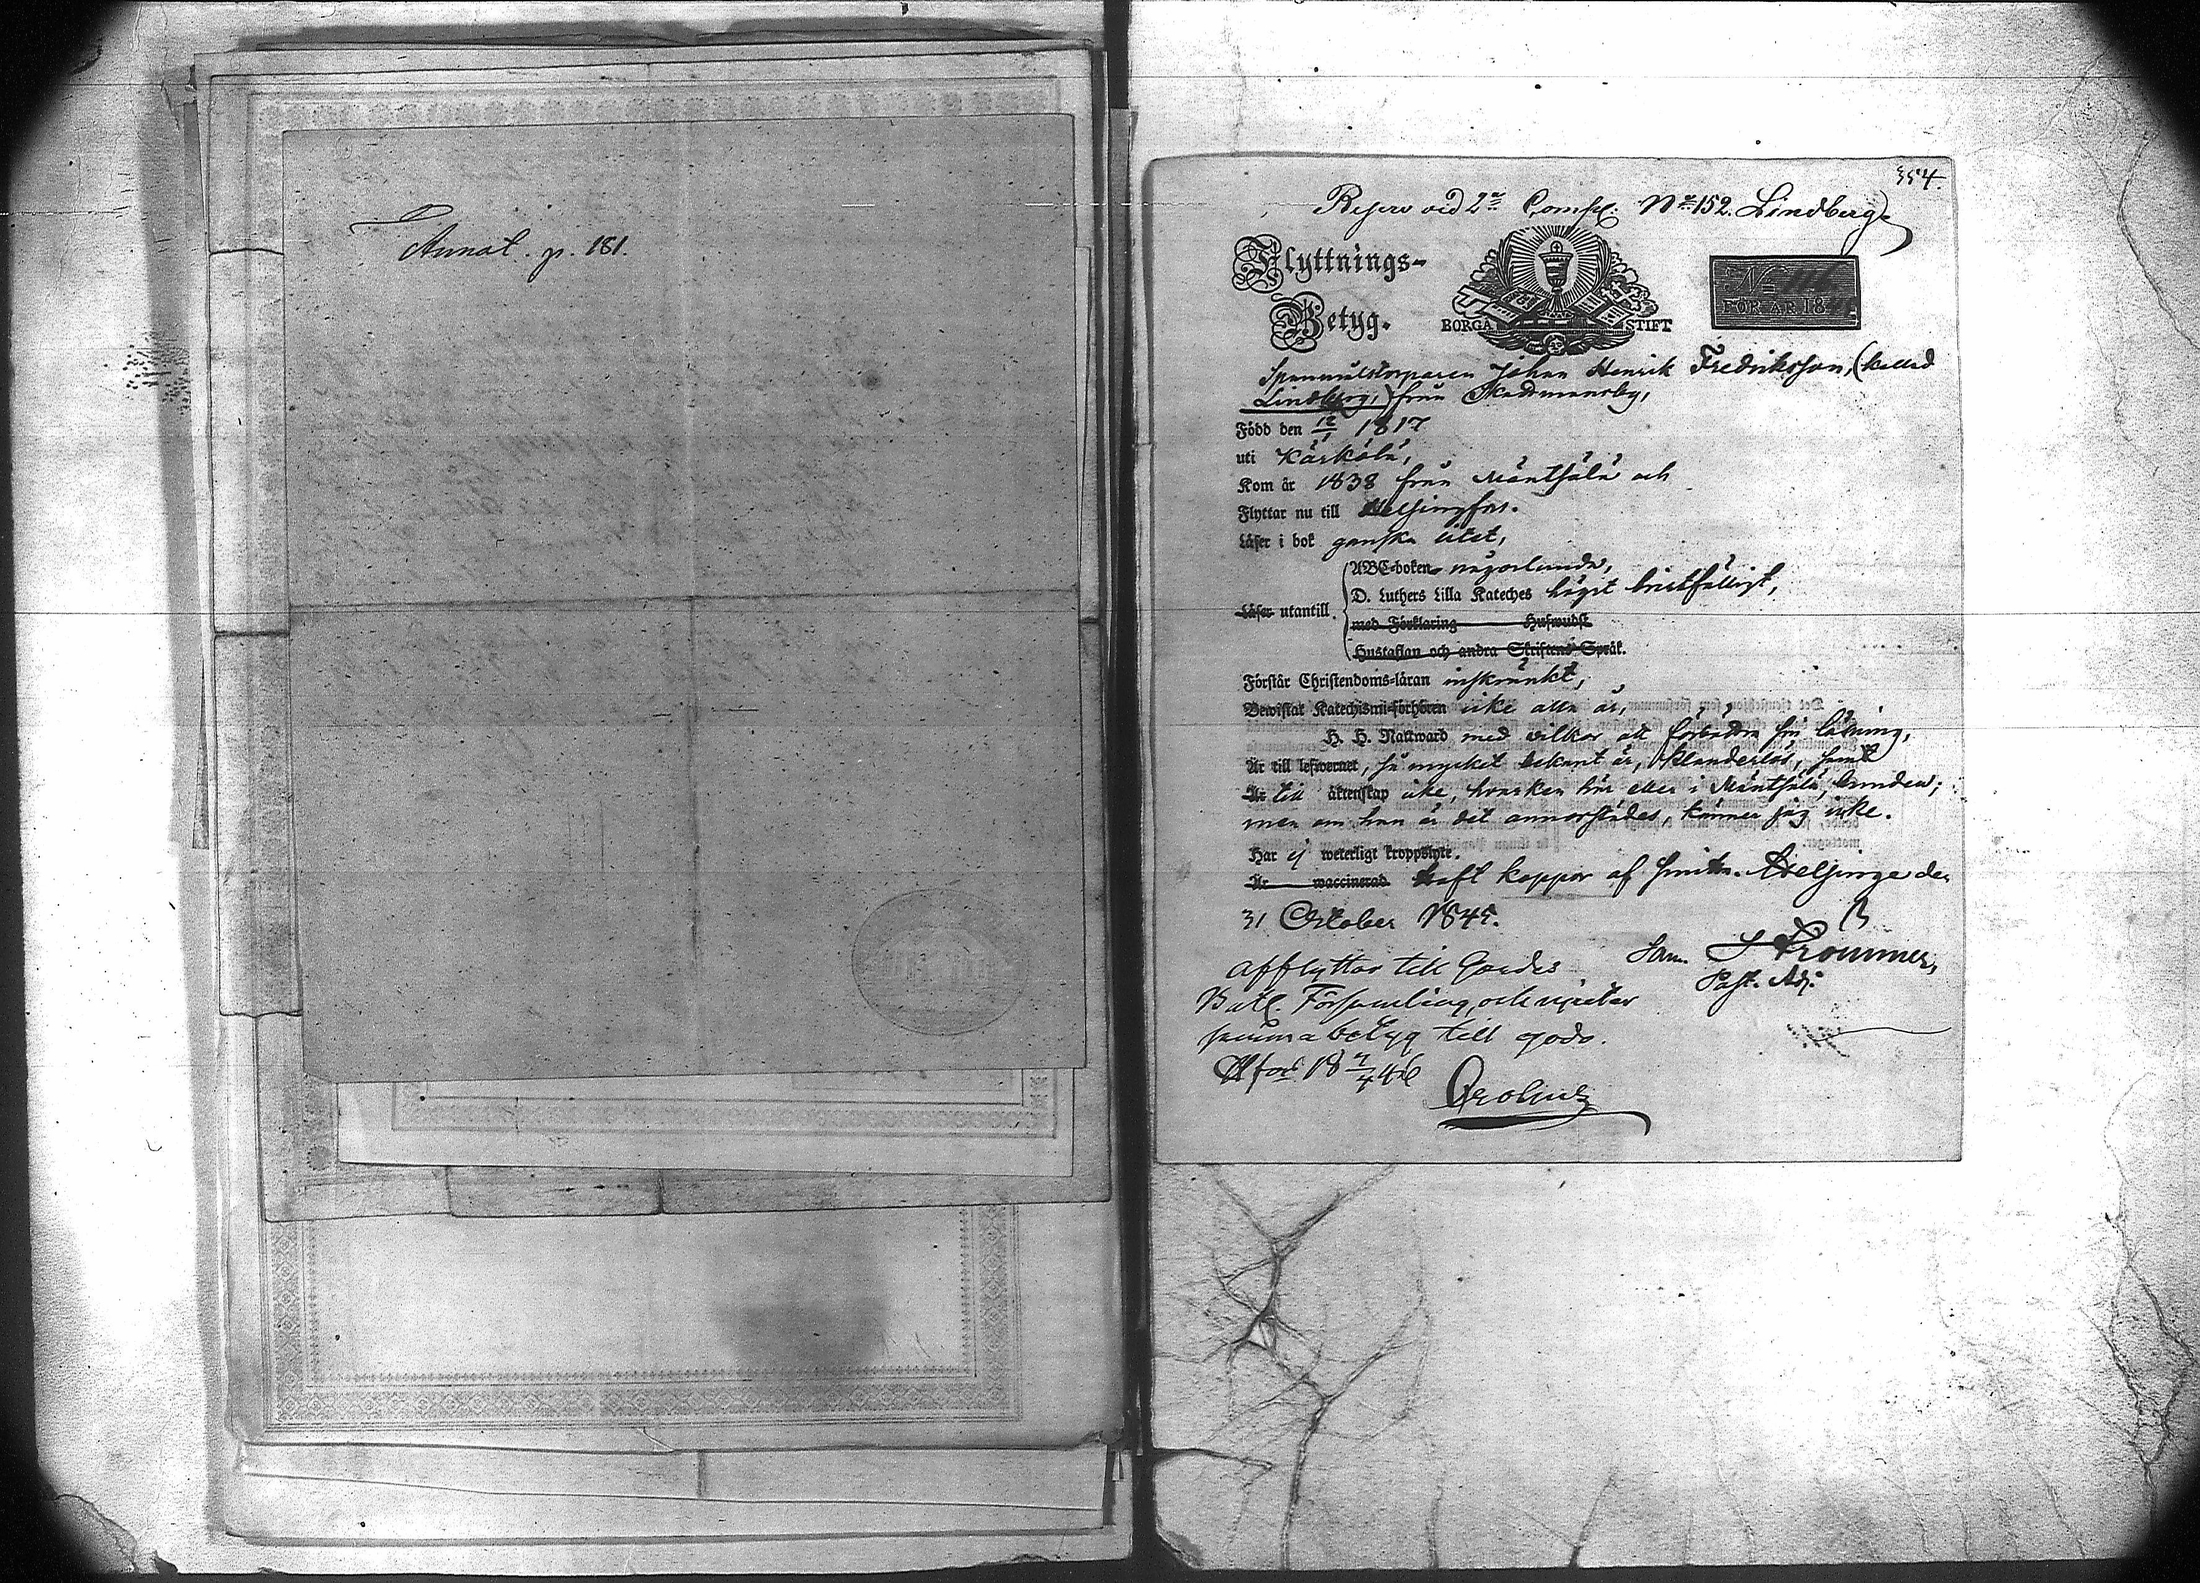 Annot. p. 181.
354.
Reserv vid 2dra Comp. No 152. Lindberg
Flyttnings-
Betyg.
BORGÅ STIFT
No
FÖR ÅR 18
Spannmålstorparen Johan Henrik Fredriksson, (kallad
Lindberg,) från Skattmansby,
Född den 12/1 1817
uti Kärkölä,
Kom år 1838 från Mäntsälä och
Flyttar nu till Helsingfors.
Läser i bok ganska litet,
ABC-boken någorlunda,
D. Luthers Lilla Kateches högst bristfälligt,
Läser utantill.
med Förklaring Huswudst.
Hustaflan och andra Skriftens Språk.
Förstår Christendoms-läran inskränkt,
Bewistat Katechismi-förhören icke alla år,
H. H. Nattward med vilkor att förbättra sin läsning,
Är till lefwernet, så mycket bekant är, klanderlös, samt
Är till äktenskap icke, hvarken här eller i Mäntsälä, bunden;
men om han är det annorstädes, känner jag icke.
Har ej weterligt kroppslyte.
Är waccinerad haft koppor af smitta. Helsinge den
31 October 1845.
Sam. Trommer,
Past. Adj.
Afflyttar till Gardes
Batl. Församling, och njuter
samma betyg till godo.
Hfors 18 7/4 46